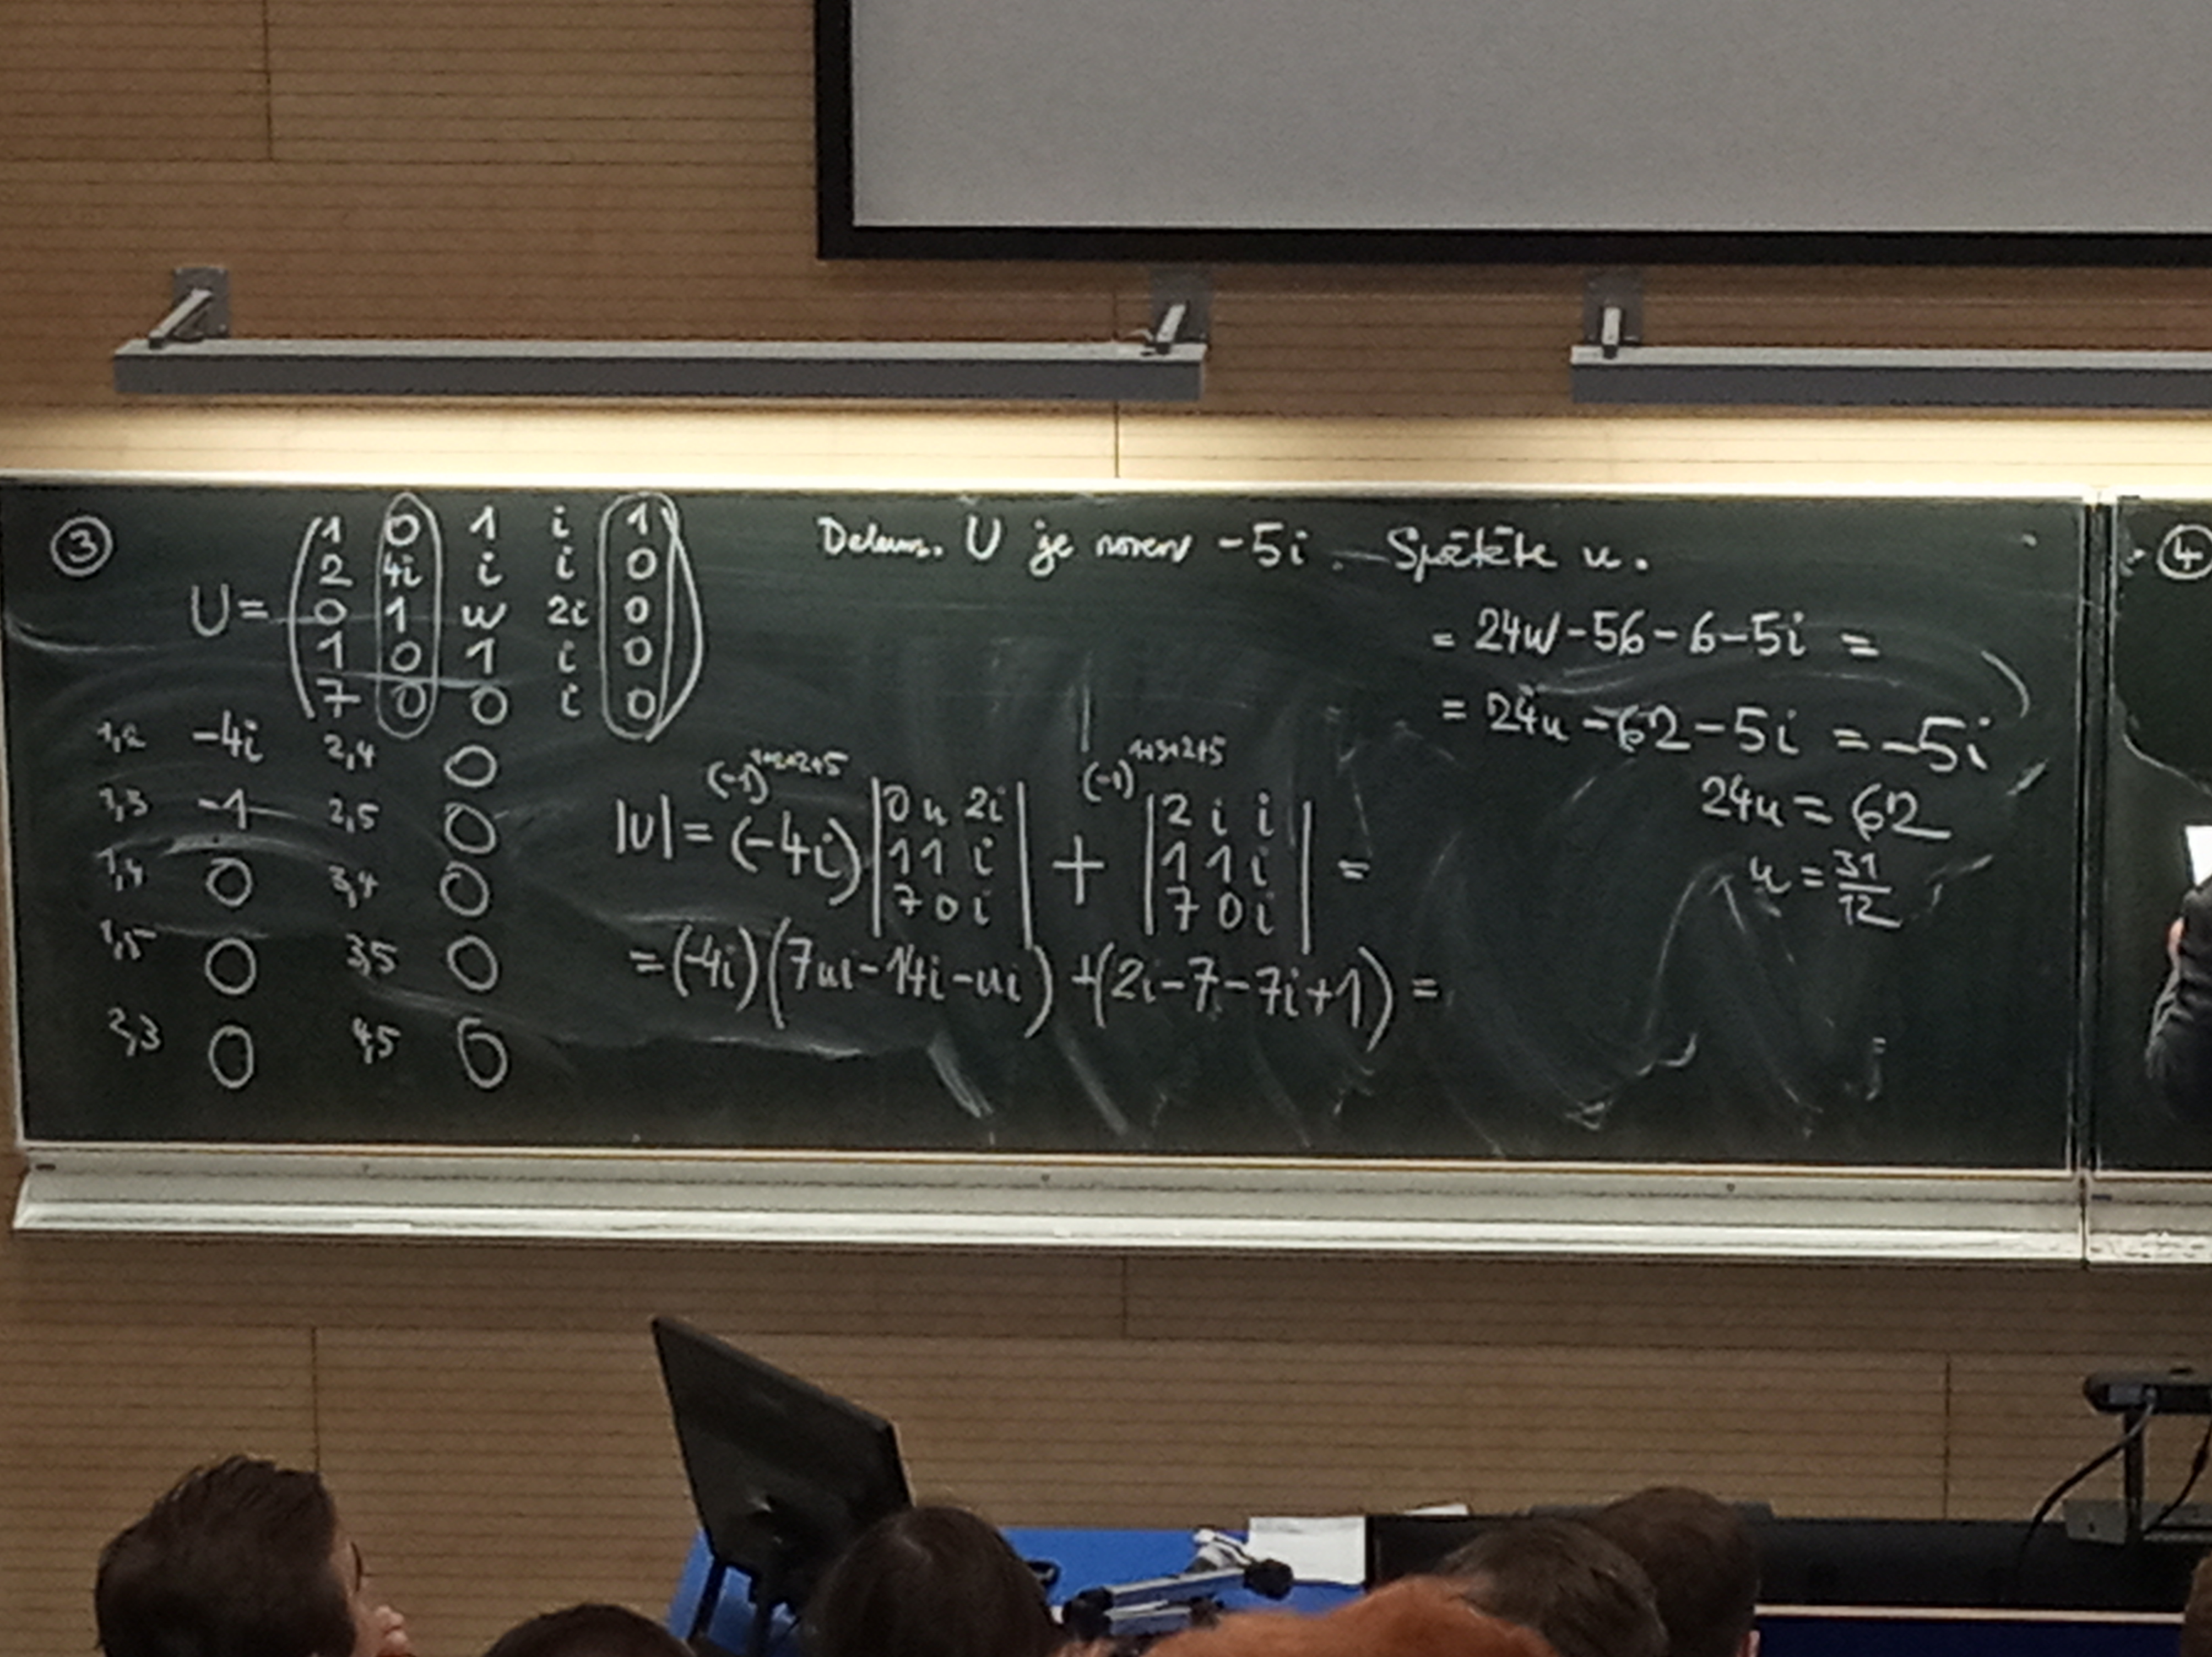 ③
U = ( 1 0 1 i 1
2 4i i i 0
0 1 u 2i 0
1 0 1 i 0
7 0 0 i 0 )
Determ. U je roven -5i. Spočtěte u.
1,2 -4i 2,4 0
1,3 -1 2,5 0
1,4 0 3,4 0
1,5 0 3,5 0
2,3 0 4,5 0
|U| = (-1)^{1+2+2+5} (-4i) | 0 u 2i | + (-1)^{1+3+2+5} | 2 i i | =
| 1 1 i | | 1 1 i |
| 7 0 i | | 7 0 i |
= (-4i)(7ui-14i-ui) + (2i-7-7i+1) =
= 24u-56-6-5i =
= 24u-62-5i = -5i
24u = 62
u = 31/12
④